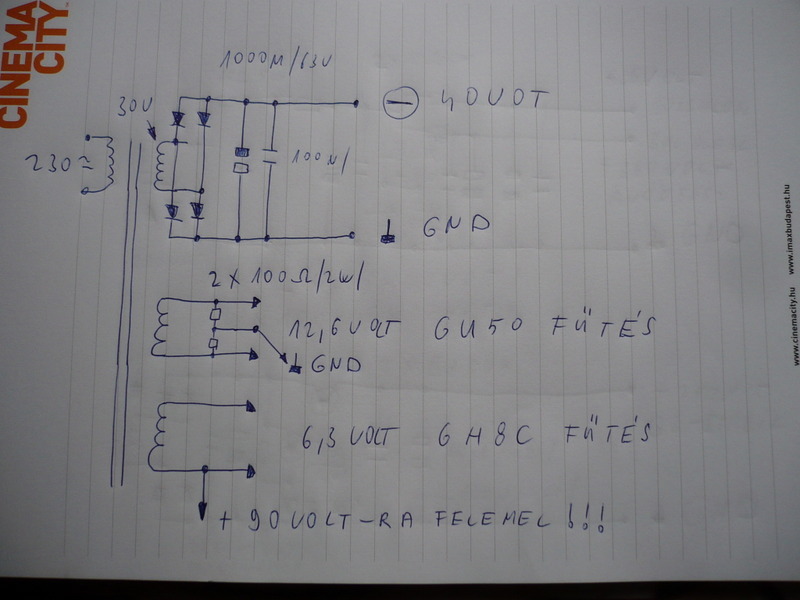 CINEMA
CITY
1000M/63V
30V
⊖ 40VOT
230≈
100N/
GND
2 X 100Ω/2W/
12,6 VOLT GU50 FŰTÉS
GND
6,3 VOLT 6H8C FŰTÉS
+ 90VOLT-RA FELEMEL !!!
www.cinemacity.hu www.imaxbudapest.hu